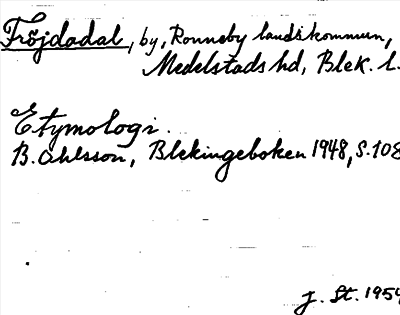 Fröjdadal, by, Ronneby landskommun,
Medelstads hd, Blek. l.
Etymologi.
B. Ohlsson, Blekingeboken 1948, s. 108
J. St. 1954